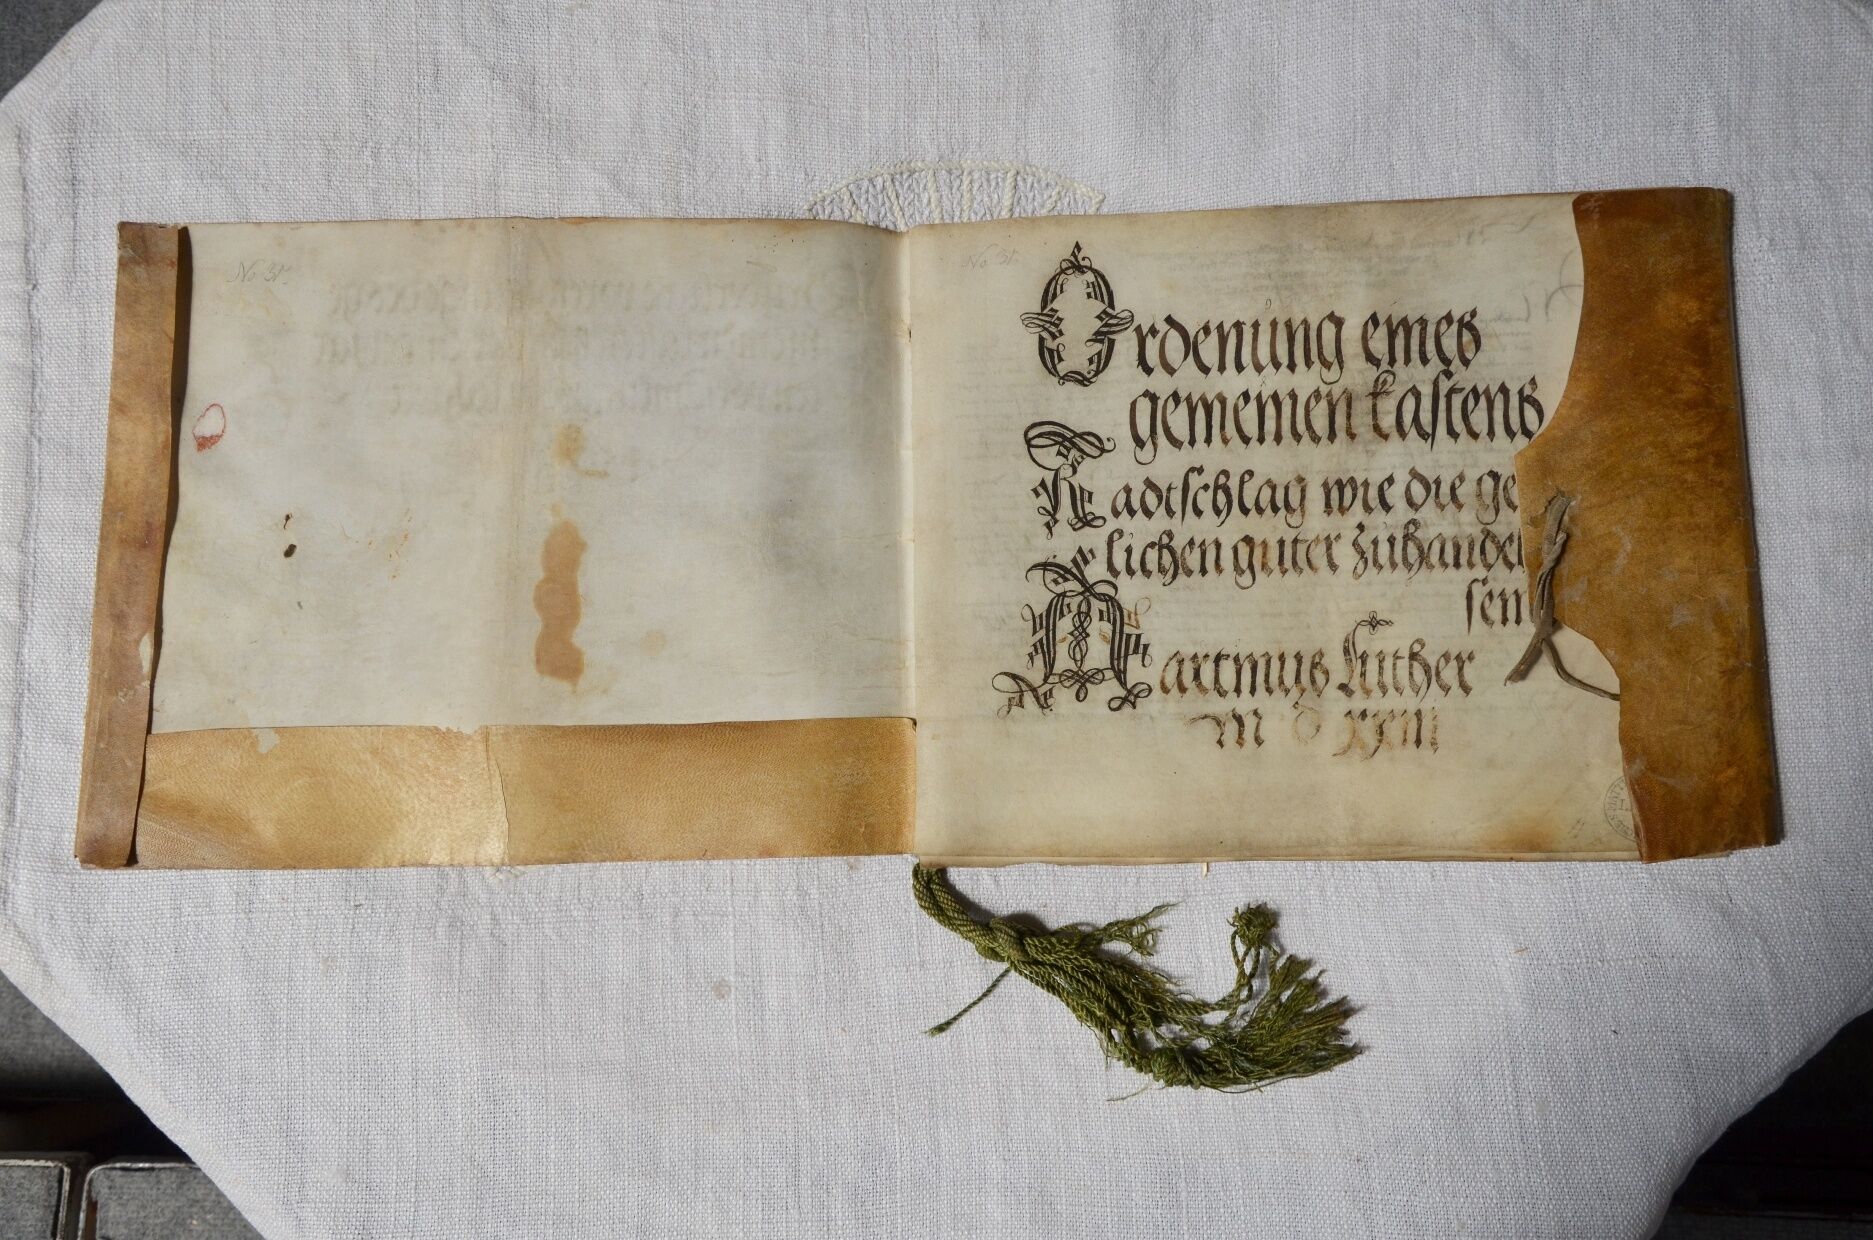 No 31.
No 31.
Ordenung eines
gemeinen kastens
Radtschlag wie die ge
lichen guter zuhandel
sein
Martinus Luther
M d xxiii